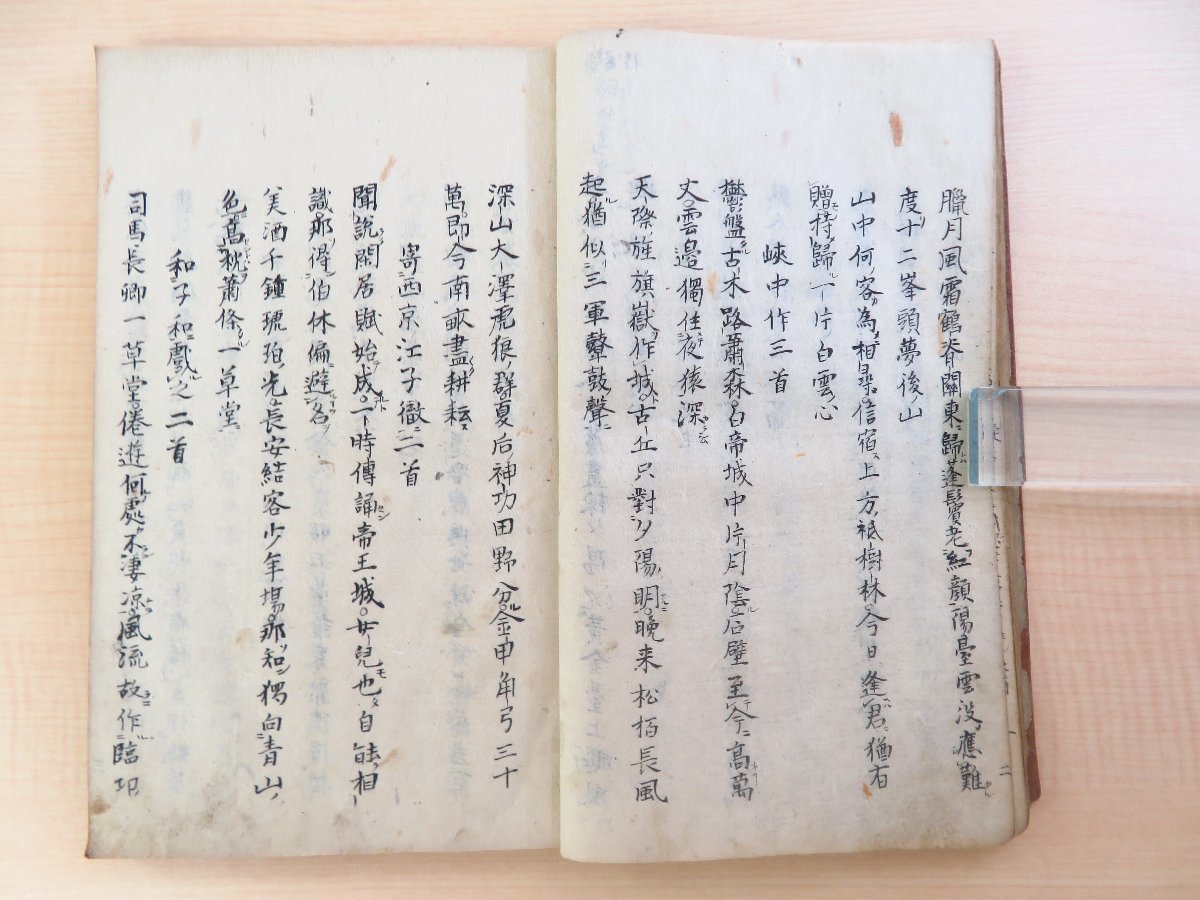 臘月風霜鶴脊關東歸蓬鬢老紅顏陽臺雲沒應難
度十二峯頭夢後山
山中何客為相尋信宿上方祇樹林今日逢君猶有
贈持歸一片白雲心
峽中作三首
鬱盤古木路蕭森白帝城中片月陰石壁至今高萬
丈雲邊獨住夜猿深
天際旌旗嶽作城古丘只對夕陽明晚来松栢長風
起猶似三軍鼙鼓聲
深山大澤虎狼群夏后神功田野分金甲角弓三十
萬即今南畝盡耕耘
寄西京江子徹二首
聞說閑居賦始成一時傳誦帝王城女兒也自能相
識那得伯休偏避名
美酒千鍾琥珀光長安結客少年場那知獨向青山
色蕭條一草堂
和子和戲之二首
司馬長卿一草堂倦遊何處不凄凉風流故作臨邛
二